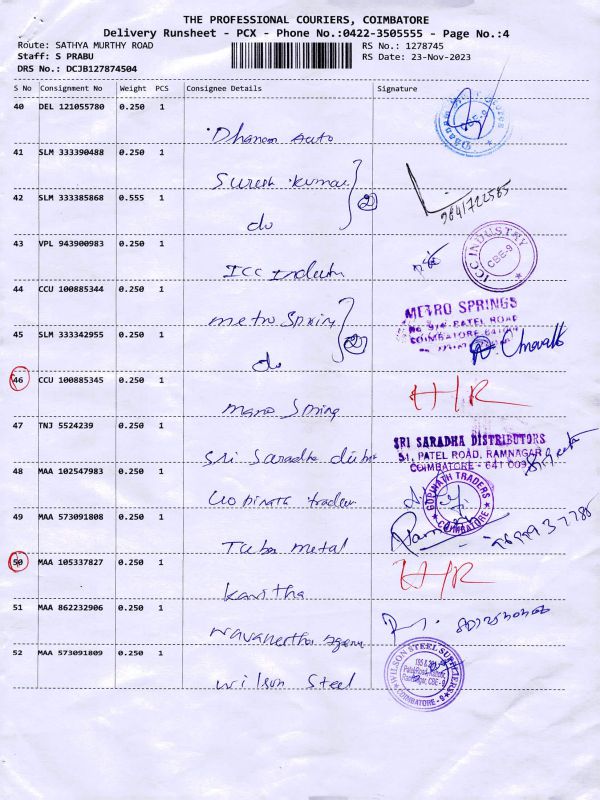 THE PROFESSIONAL COURIERS, COIMBATORE
Delivery Runsheet - PCX - Phone No.:0422-3505555 - Page No.:4
Route: SATHYA MURTHY ROAD RS No.: 1278745
Staff: S PRABU RS Date: 23-Nov-2023
DRS No.: DCJB127874504
S No Consignment No Weight PCS Consignee Details Signature
40 DEL 121055780 0.250 1
Dhanam Auto
41 SLM 333390488 0.250 1
Suresh Kumar
2
42 SLM 333385868 0.555 1
9841722585
do
43 VPL 943900983 0.250 1
ICC INDUSTRY
CBE-9
ICC Industry
44 CCU 100885344 0.250 1
METRO SPRINGS
PATEL ROAD
COIMBATORE
metro Spring
2
45 SLM 333342955 0.250 1
do
46 CCU 100885345 0.250 1
H/R
Spring
47 TNJ 5524239 0.250 1
SRI SARADHA DISTRIBUTORS
51, PATEL ROAD, RAMNAGAR
COIMBATORE - 641 009
Sri Saradha
48 MAA 102547983 0.250 1
GOPINATH TRADERS
COIMBATORE
Gopinath traders
49 MAA 573091808 0.250 1
Tube metal
50 MAA 105337827 0.250 1
H/R
Kavitha
51 MAA 862232906 0.250 1
52 MAA 573091809 0.250 1
WILSON STEEL SUPPLIERS
COIMBATORE - 9
Wilson Steel